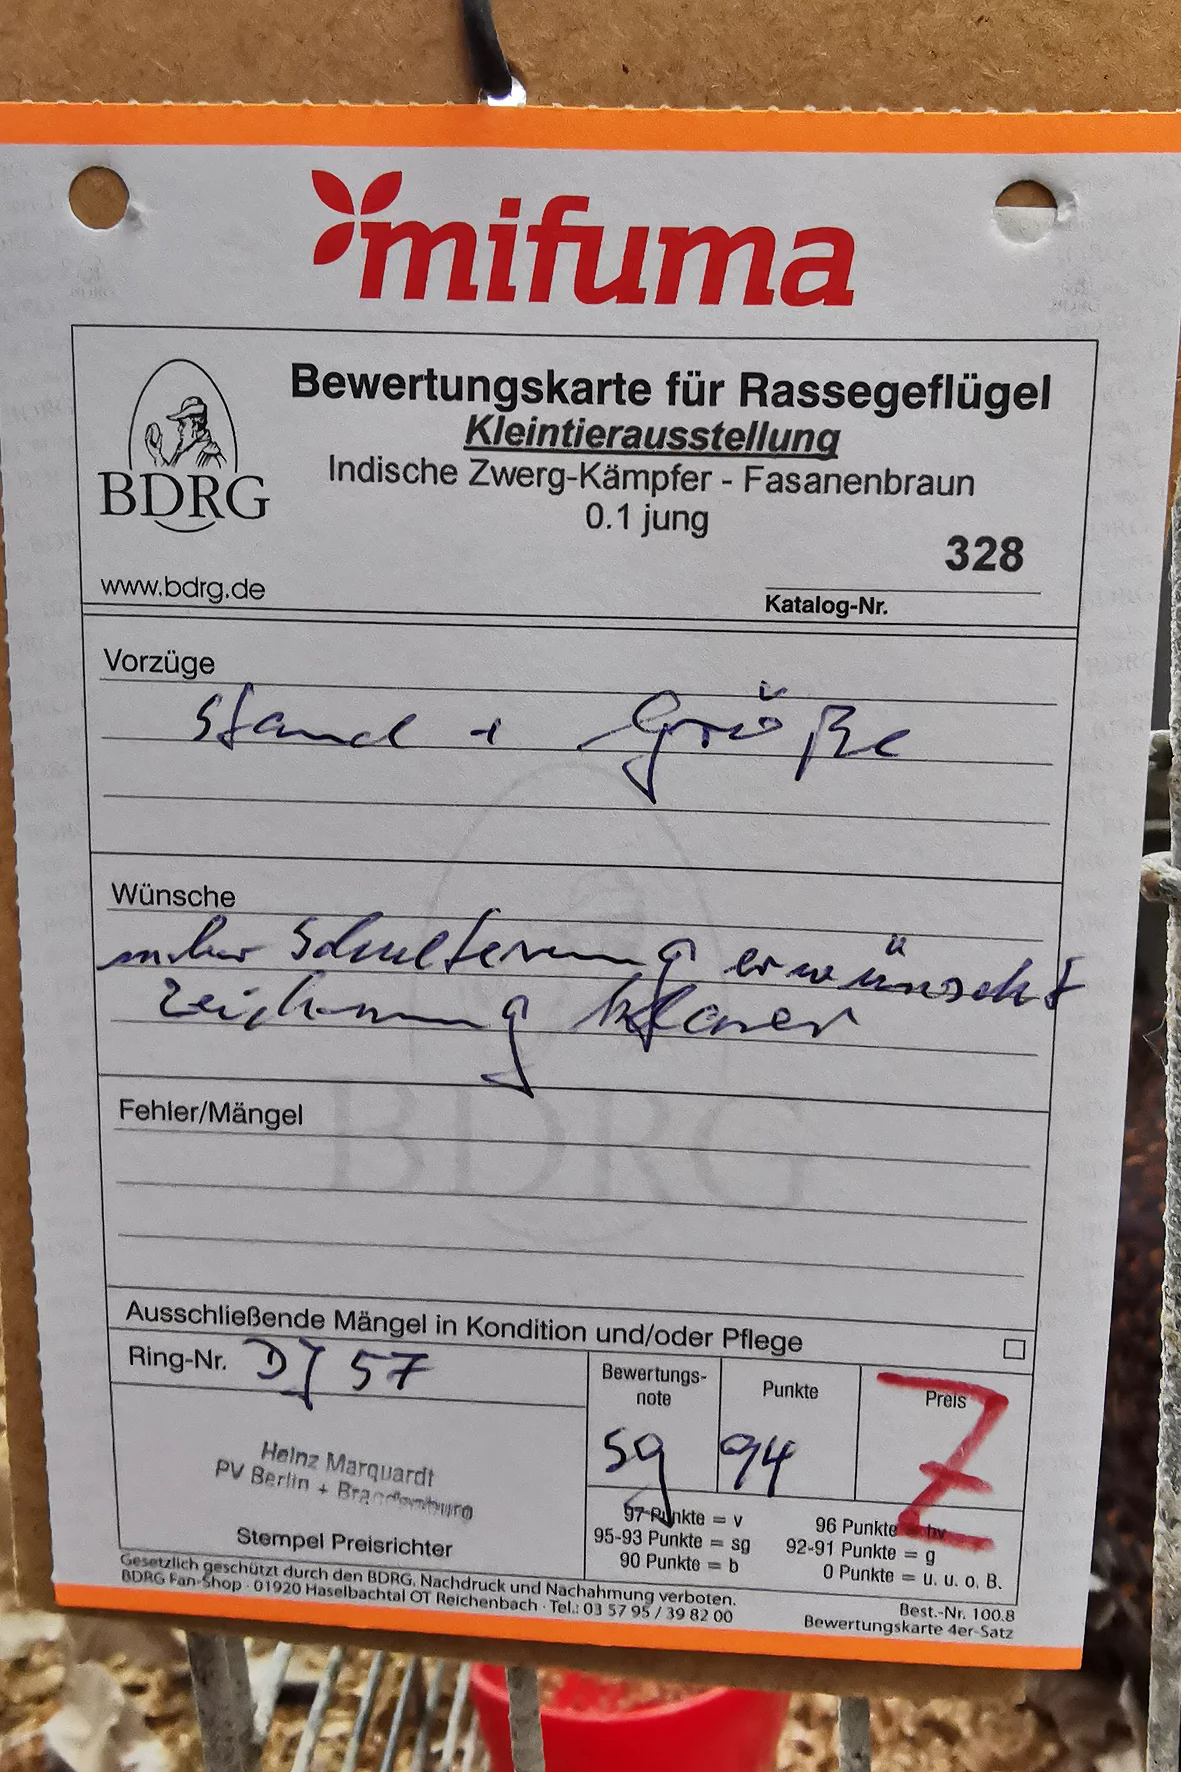 mifuma
Bewertungskarte für Rassegeflügel
Kleintierausstellung
Indische Zwerg-Kämpfer - Fasanenbraun
0.1 jung
BDRG
328
www.bdrg.de
Katalog-Nr.
Vorzüge
Stand + Größe
Wünsche
mehr Schulterung erwünscht
Zeichnung klarer
BDRG
Fehler/Mängel
Ausschließende Mängel in Kondition und/oder Pflege
Ring-Nr. DJ 57
Bewertungs-
note
Punkte
Preis
sg
94
Z
Heinz Marquardt
PV Berlin + Brandenburg
Stempel Preisrichter
97 Punkte = v
96 Punkte = hv
95-93 Punkte = sg
92-91 Punkte = g
90 Punkte = b
0 Punkte = u. u. o. B.
Gesetzlich geschützt durch den BDRG. Nachdruck und Nachahmung verboten.
BDRG Fan-Shop · 01920 Haselbachtal OT Reichenbach · Tel.: 03 57 95 / 39 82 00
Best.-Nr. 100.8
Bewertungskarte 4er-Satz